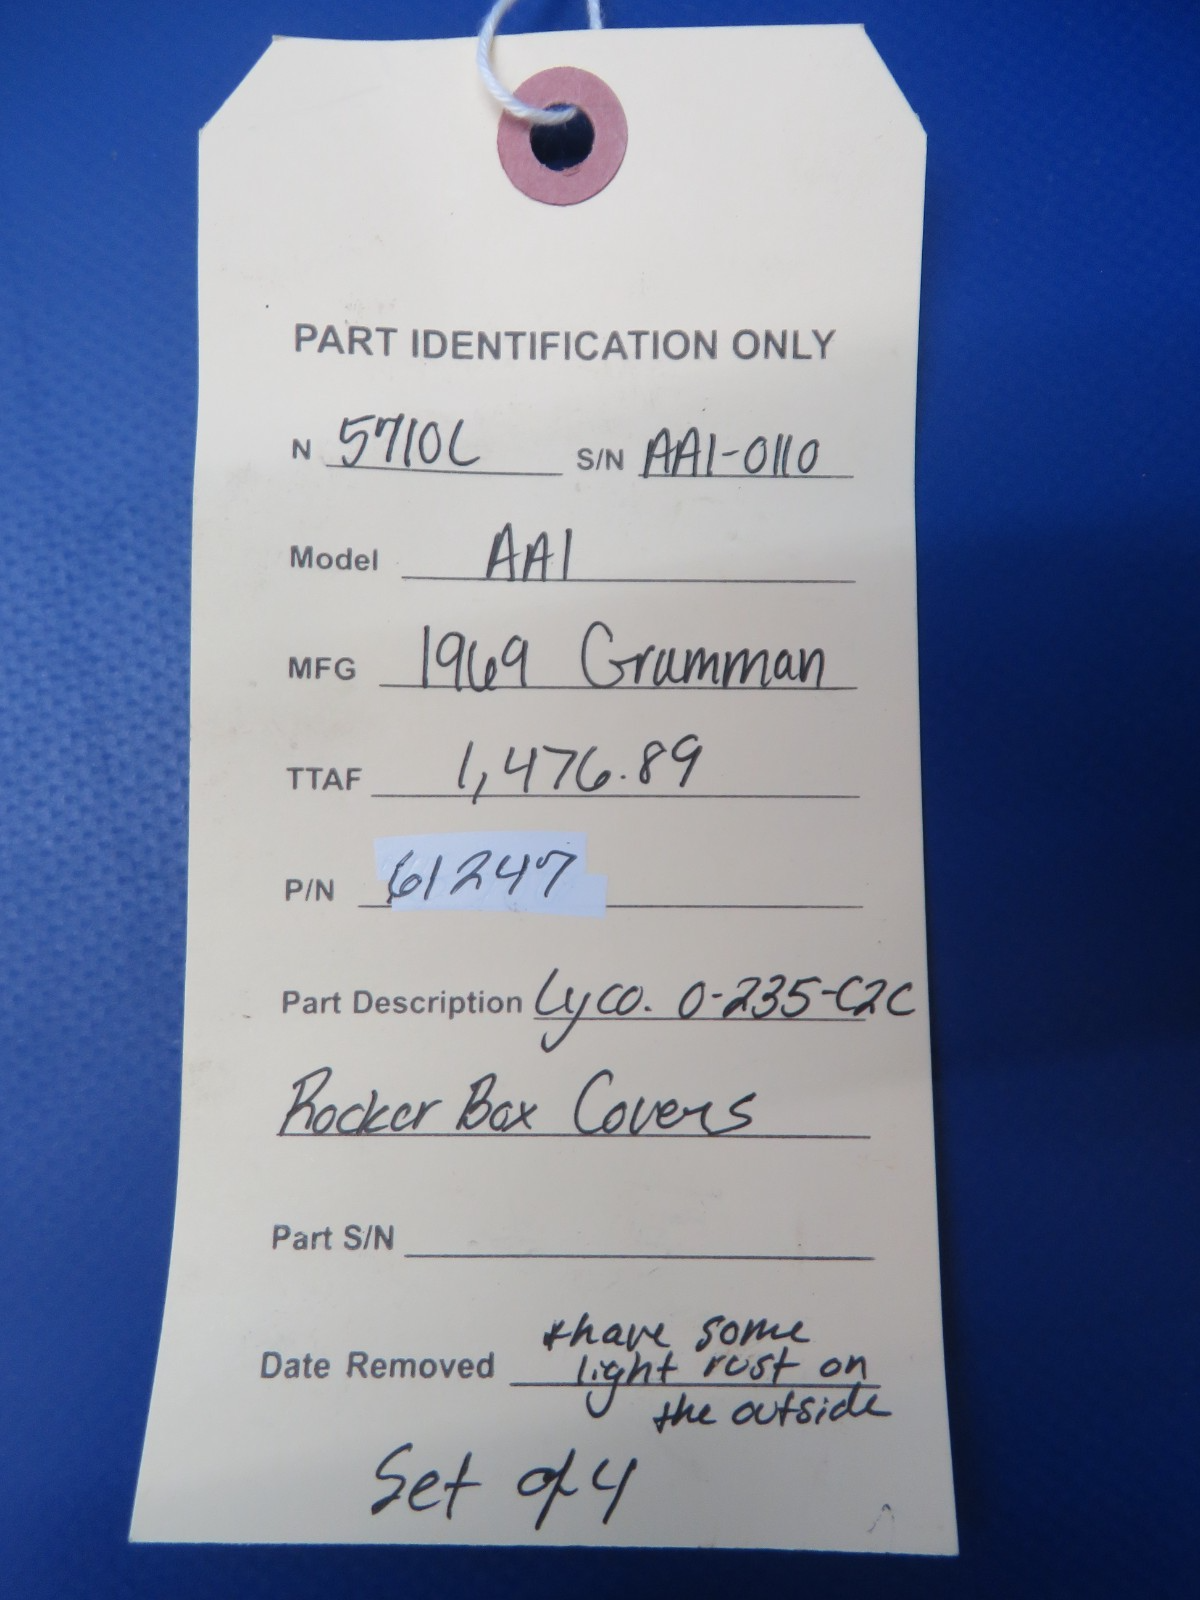 PART IDENTIFICATION ONLY
N 5710L S/N AA1-0110
Model AA1
MFG 1969 Grumman
TTAF 1,476.89
P/N 61247
Part Description Lyco. O-235-C2C
Rocker Box Covers
Part S/N
*have some
Date Removed light rust on
the outside
Set of 4